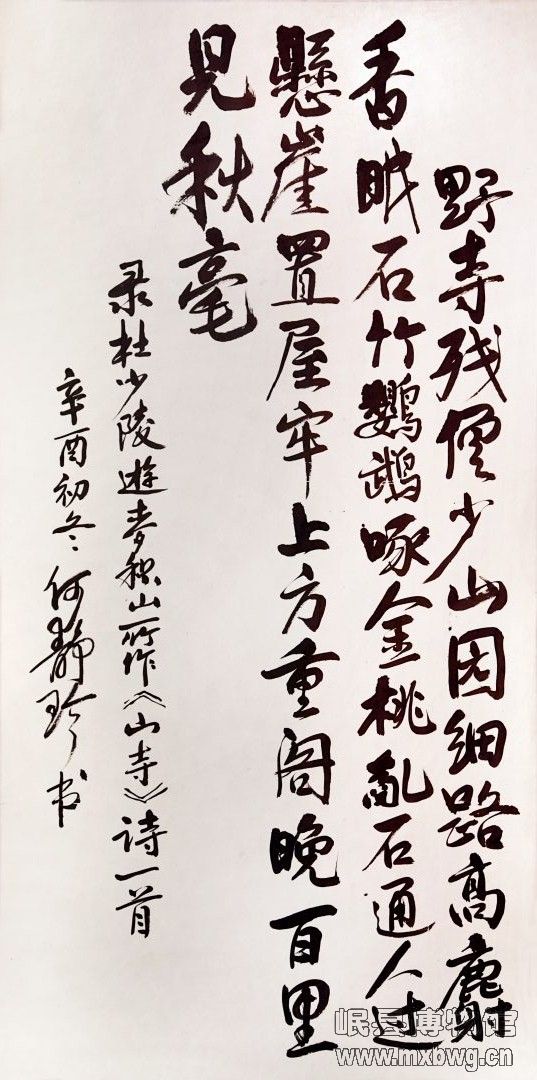 野寺残僧少山因细路高麝
香眠石竹鹦鹉啄金桃乱石通人过
懸崖置屋牢上方重阁晚百里
見秋毫
录杜少陵遊麦积山所作《山寺》诗一首
辛酉初冬何静玲书
岷县博物馆
www.mxbwg.cn